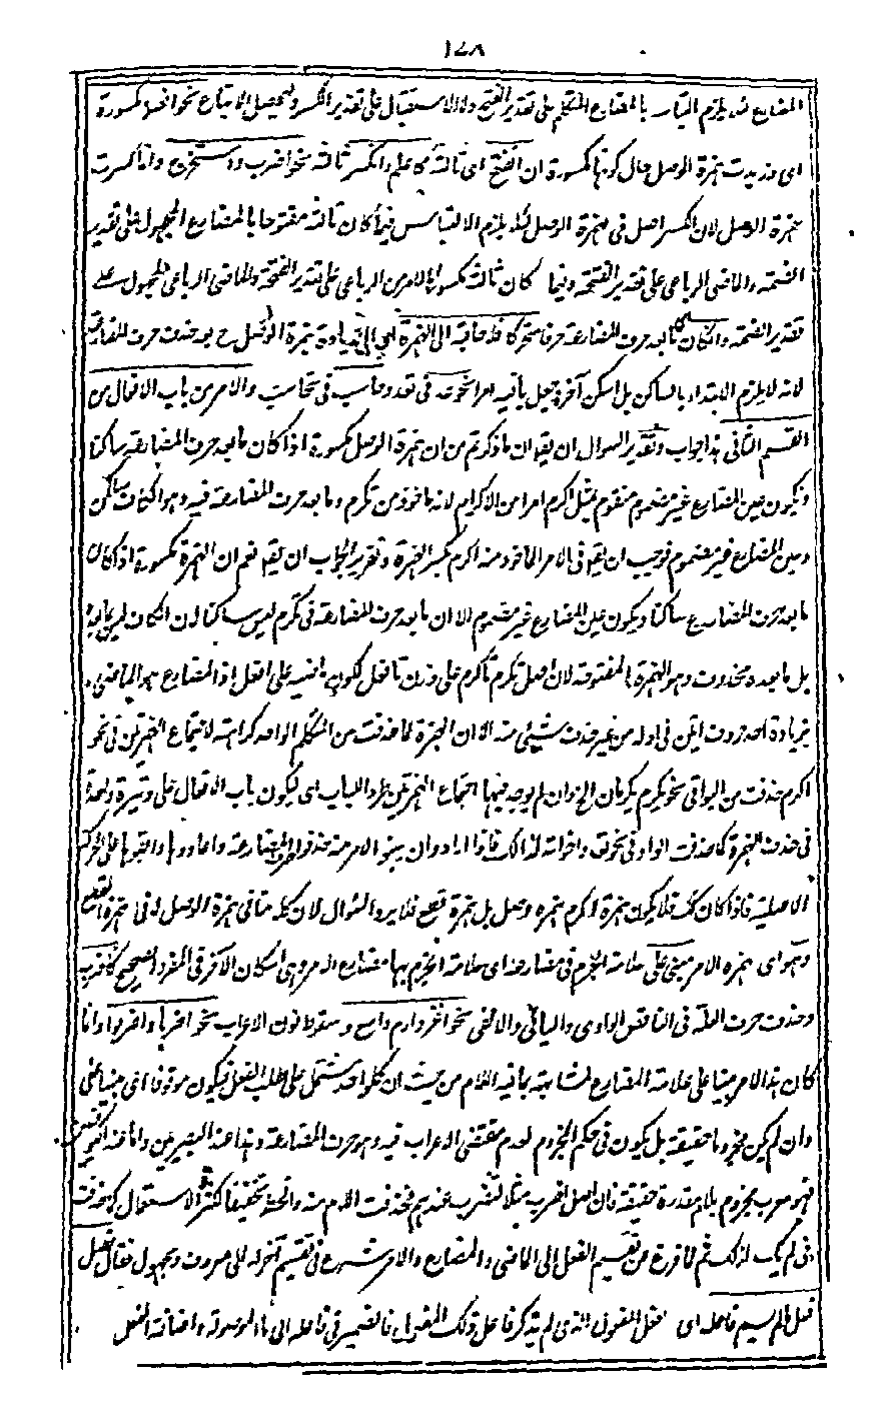 ١٢٨
المضارع لئلا يلزم التباس بالمضارع المتكلم على تقدير الفتح والاستقبال على تقدير الكسر الامتناع نحو افعل مكسورة
اى زيدت همزة الوصل حال كونها مكسورة ان انفتح اى ثالثه كاعلم وانكسر ثالثه نحو اضرب واستخرج وانما كسرت
همزة الوصل لان الكسر اصل فى همزة الوصل لئلا يلزم الالتباس فيما كان ثالثه مفتوحا بالمضارع المجهول على تقدير
الضمة والماضى الرباعى على تقدير الفتحة وفيما كان ثالثه مكسورا بالامر من الرباعى على تقدير الفتحة والماضى الرباعى المجهول على
تقدير الضمة وان كان ما بعد حرف المضارعة حرفا متحركا فلا حاجة الى الهمزة اى الى زيادة همزة الوصل ح بعد حذف حرف المضارعة
لانه لا يلزم الابتداء بالساكن بل اسكن آخره يجعل باقيه امرا نحو عد فى تعد وحاسب فى تحاسب والامر من باب الافعال من
القسم الثانى هذا جواب وتقدير السوال ان يقه ان ما ذكرتم من ان همزة الوصل مكسورة اذا كان ما بعد حرف المضارعة ساكنا
ويكون عين المضارع غير مضموم منقوض بمثل اكرم امرا من الاكرام لانه ماخوذ من تكرم وما بعد حرف المضارعة فيه وهو الكاف ساكن
وعين المضارع غير مضموم فوجب ان يقه فى الامر الماخوذ منه اكرم بكسر الهمزة وتقرير الجواب ان يقه نعم ان الهمزة مكسورة اذا كان
ما بعد حرف المضارع ساكنا ويكون عين المضارع غير مضموم الا ان ما بعد حرف المضارعة فى تكرم ليس ساكنا لان الكاف ليس ما بعده
بل ما بعده محذوف وهو الهمزة المفتوحة لان اصل تكرم تأكرم على وزن تأفعل لكون ماضيه على افعل اذ المضارع هو الماضى
بزيادة احد حروف اتين فى اوله من غير حذف شيئ منه الا ان الهمزة لما حذفت من المتكلم الواحد كراهة لاجتماع الهمزتين فى نحو
اكرم حذفت من البواقى نحو يكرم يكرمان الخ وان لم يوجد فيها اجتماع الهمزتين طردا للباب اى ليكون باب الافعال على وتيرة واحدة
فى حذف الهمزة كما حذفت الواو فى نحو تعد واخواته لذالك فاذا ارادوا ان يبنوا الامر منه حذفوا حرف المضارعة واعادوها وابقوها على الحركة
الاصلية فاذا كان كك فلا يكون همزة اكرم همزة وصل بل همزة قطع فلا يرد السؤال لان كلامنا فى همزة الوصل لا فى همزة القطع
وهو اى همزه الامر مبنى على علامة الجزم فى مضارعه اى علامة انجزم بها مضارع الامر وهى اسكان الآخر فى المفرد الصحيح كاضرب
وحذف حرف العلة فى الناقص الواوى واليائى والالفى نحو اغز وارم واسع وسقوط نون الاعراب نحو اضربا واضربوا وانما
كان هذا الامر مبنيا على علامة المضارع لمشابهته بما فيه اللام من حيث ان كلواحد مشتمل على طلب الفعل فيكون موقوفا اى مبنيا على
وان لم يكن مجزوما حقيقة بل يكون فى حكم المجزوم لعدم مقتضى الاعراب فيه وهو حرف المضارعة وهذا عند البصريين واما عند الكوفيين
فهو معرب مجزوم بلام مقدرة حقيقة فان اصل اضرب مثلا لتضرب عندهم فحذفت اللام منه والتاء تخفيفا لكثرة الاستعمال كما حذفت
فى لم يك لذلك ثم لما فرغ من تقسيم الفعل الى الماضى والمضارع والامر شرع فى تقسيم آخر له الى معروف ومجهول فقال فعل
فعل ما لم يسم فاعله اى فعل المفعول الذى لم يذكر فاعل ذلك المفعول فالضمير فى فاعله الى ما الموصولة واضافة الفعل